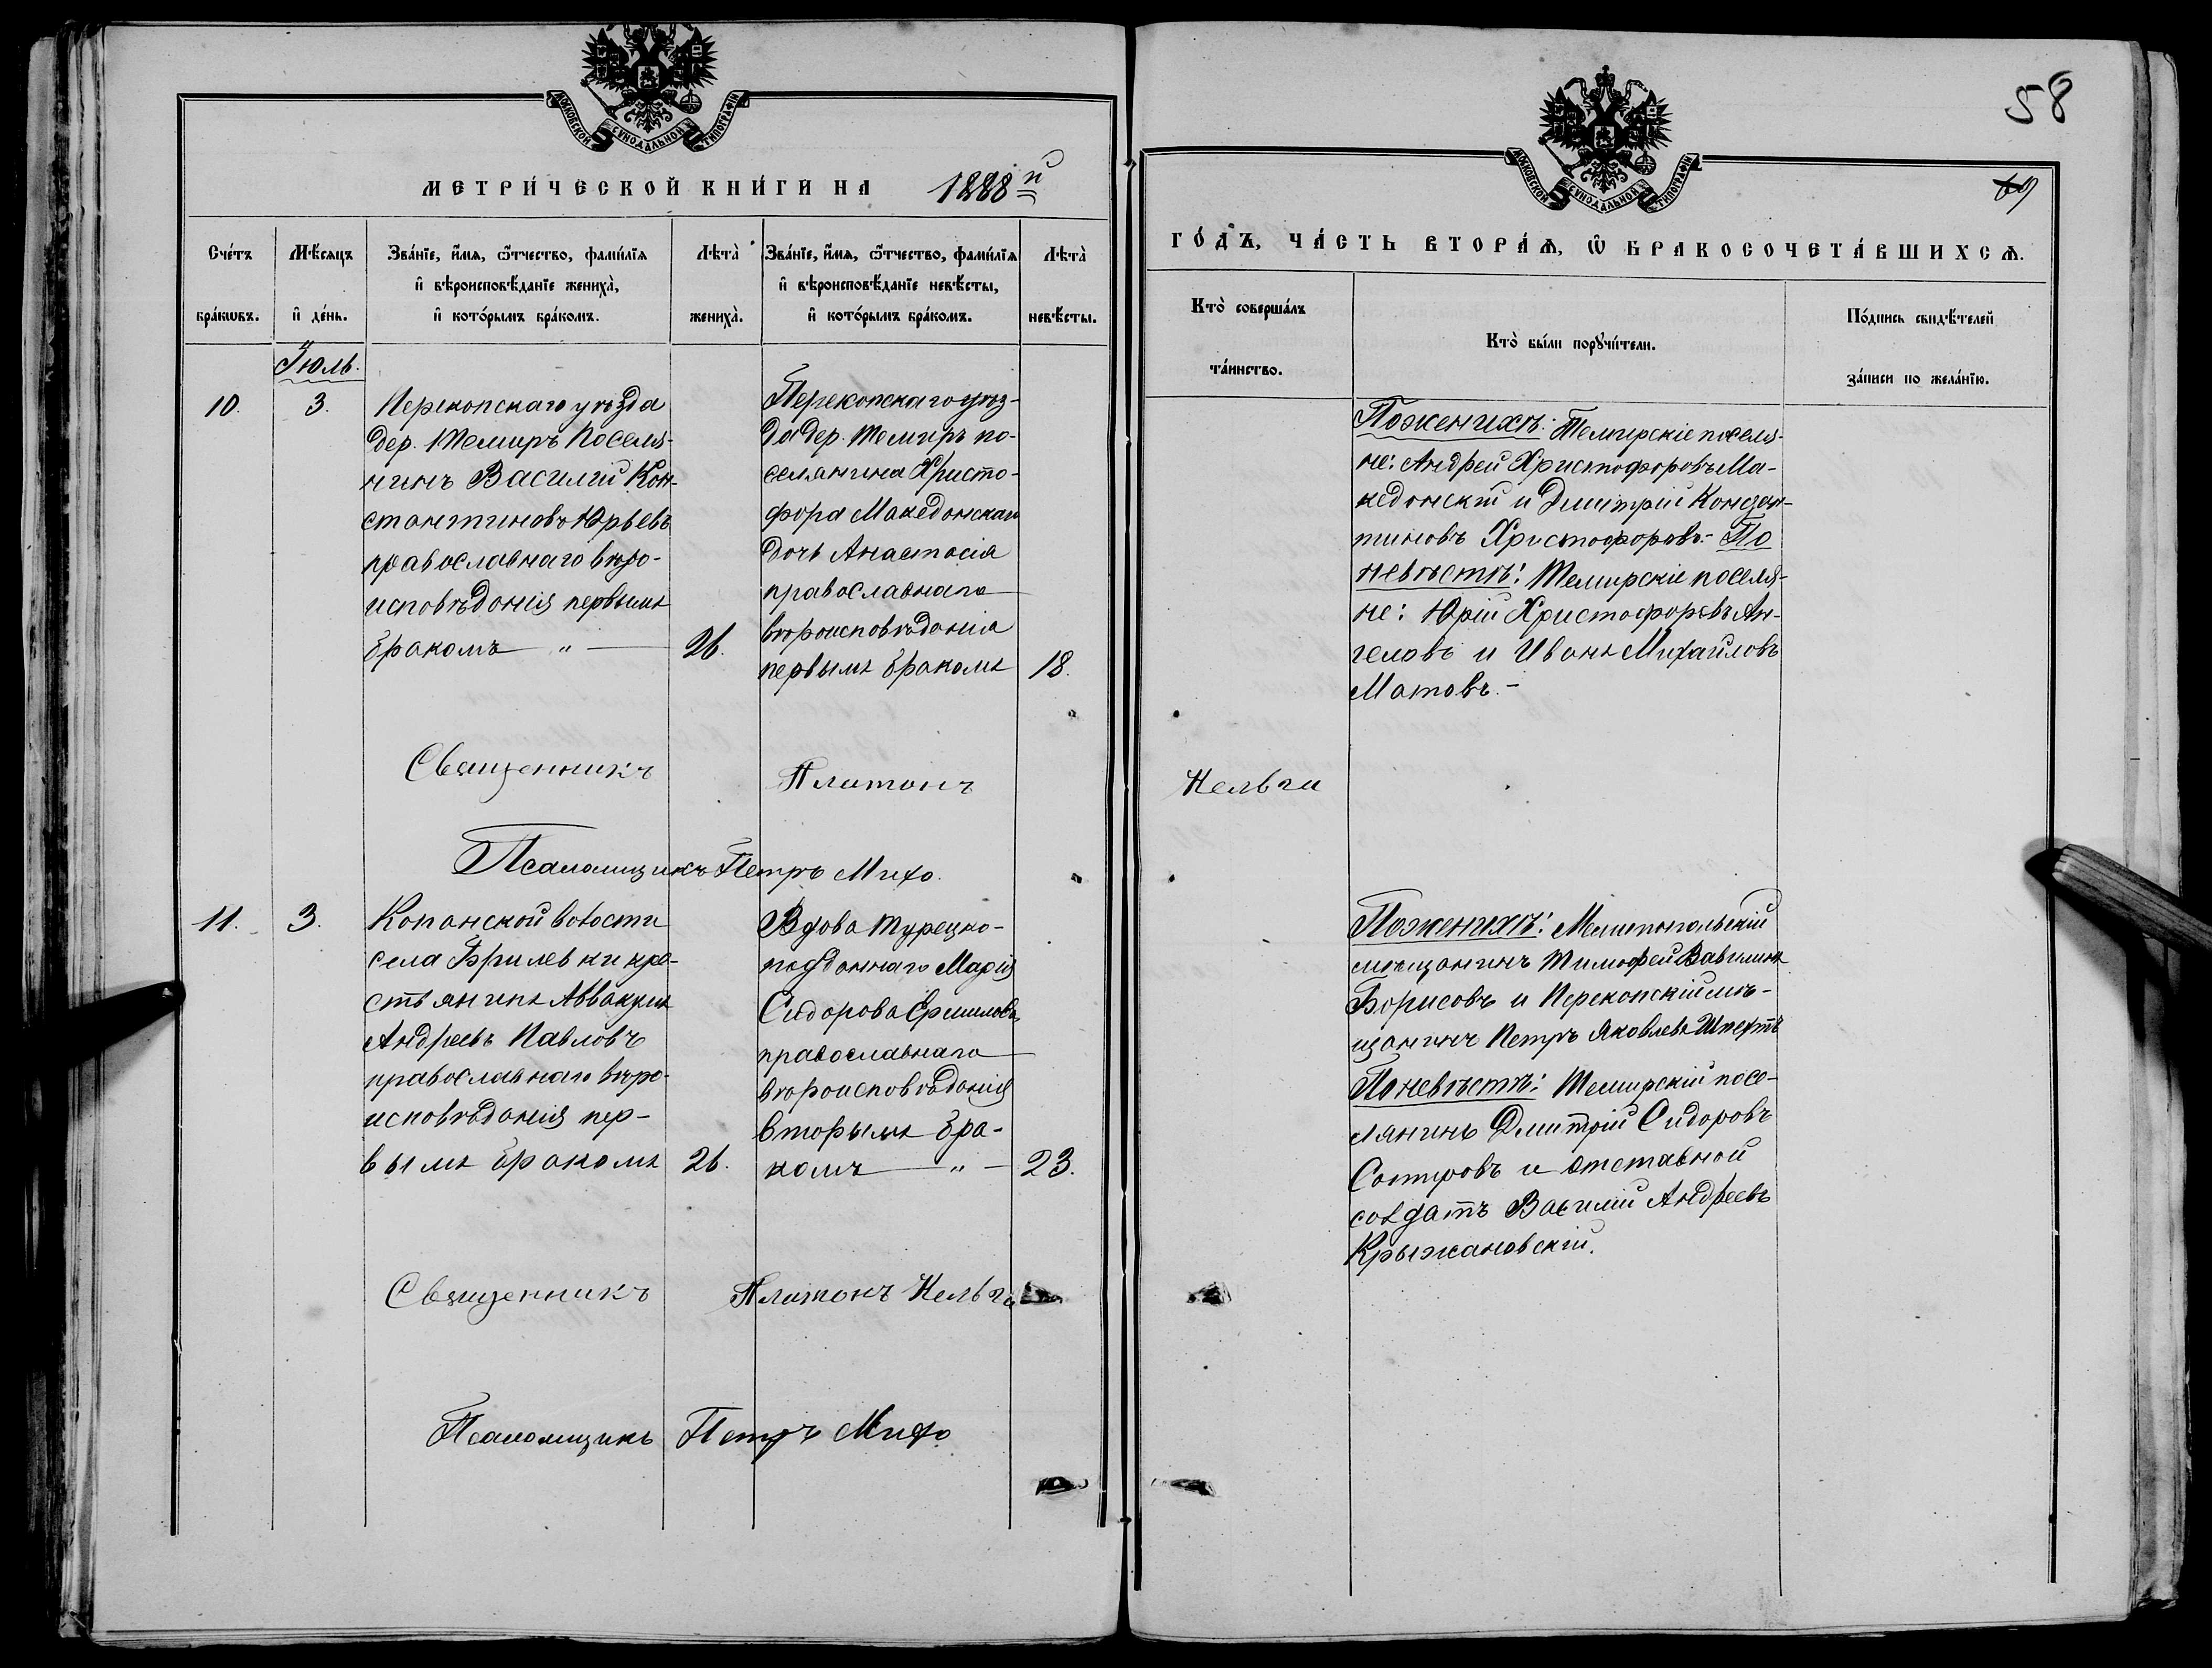 МОСКОВСКОЙ СУНОДАЛЬНОЙ ТИПОГРАФІИ
МЕТРИ́ЧЕСКОЙ КНИ́ГИ НА 1888й
Сче́тъ бра́кωвъ.
Мѣ́сяцъ и҆ де́нь.
Зва́нїе, и҆́мя, ѻ҆́тчество, фами́лїя
и҆ вѣроисповѣ́данїе жениха̀,
и҆ кото́рымъ бра́комъ.
Лѣта̀ жениха̀.
Зва́нїе, и҆́мя, ѻ҆́тчество, фами́лїя
и҆ вѣроисповѣ́данїе невѣ́сты,
и҆ кото́рымъ бра́комъ.
Лѣта̀ невѣ́сты.
Іюль.
10.
3.
Перекопскаго уѣзда
дер. Темиръ поселя-
нинъ Василій Кон-
стантиновъ Юрьевъ
православнаго вѣро-
исповѣданія первымъ
бракомъ — " —
26.
Перекопскаго уѣз-
да дер. Темиръ по-
селянина Христо-
фора Македонскаго
дочь Анастасія
православнаго
вѣроисповѣданія
первымъ бракомъ
18.
Священникъ Платонъ Кельги
Псаломщикъ Петръ Михо.
11.
3.
Копанской волости
села Брилевки кре-
стьянинъ Аввакумъ
Андреевъ Павловъ
православнаго вѣро-
исповѣданія пер-
вымъ бракомъ
26.
Вдова турецко-
подданнаго Марія
Сидорова Ермилова,
православнаго
вѣроисповѣданія
вторымъ бра-
комъ — " —
23.
Священникъ Платонъ Кельги
Псаломщикъ Петръ Михо
58
МОСКОВСКОЙ СУНОДАЛЬНОЙ ТИПОГРАФІИ
69
ГО́ДЪ, ЧА́СТЬ ВТОРА́Я, Ѡ҆ БРАКОСОЧЕТА́ВШИХСЯ.
Кто̀ соверша́лъ
та́инство.
Кто̀ бы́ли порꙋчи́тели.
По́дпись свидѣ́телей
за́писи по жела́нїю.
По женихѣ: Темирскіе поселя-
не: Андрей Христофоровъ Ма-
кедонскій и Дмитрій Констан-
тиновъ Христофоровъ.- По
невѣстѣ: Темирскіе поселя-
не: Юрій Христофоровъ Ан-
геловъ и Иванъ Михайловъ
Матовъ.-
По женихѣ: Мелитопольскій
мѣщанинъ Тимофей Вавилинъ
Борисовъ и Перекопскій мѣ-
щанинъ Петръ Яковлевъ
По невѣстѣ: Темирскій посе-
лянинъ Дмитрій Сидоровъ
Сотировъ и отставной
солдатъ Василій Андреевъ
Крыжановскій.